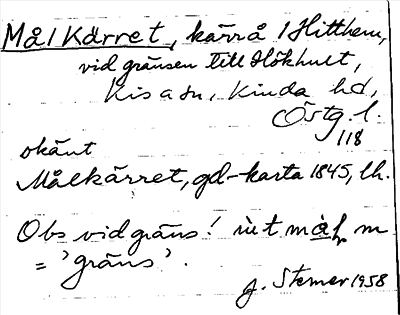 Målkärret, kärrå i Hitthem,
vid gränsen till Hökhult,
Kisa sn, Kinda hd,
Östg. l.
118
okänt
Målkärret, gd-karta 1845, lh.
Obs vid gräns! m
= 'gräns'.
g. Sterner 1958